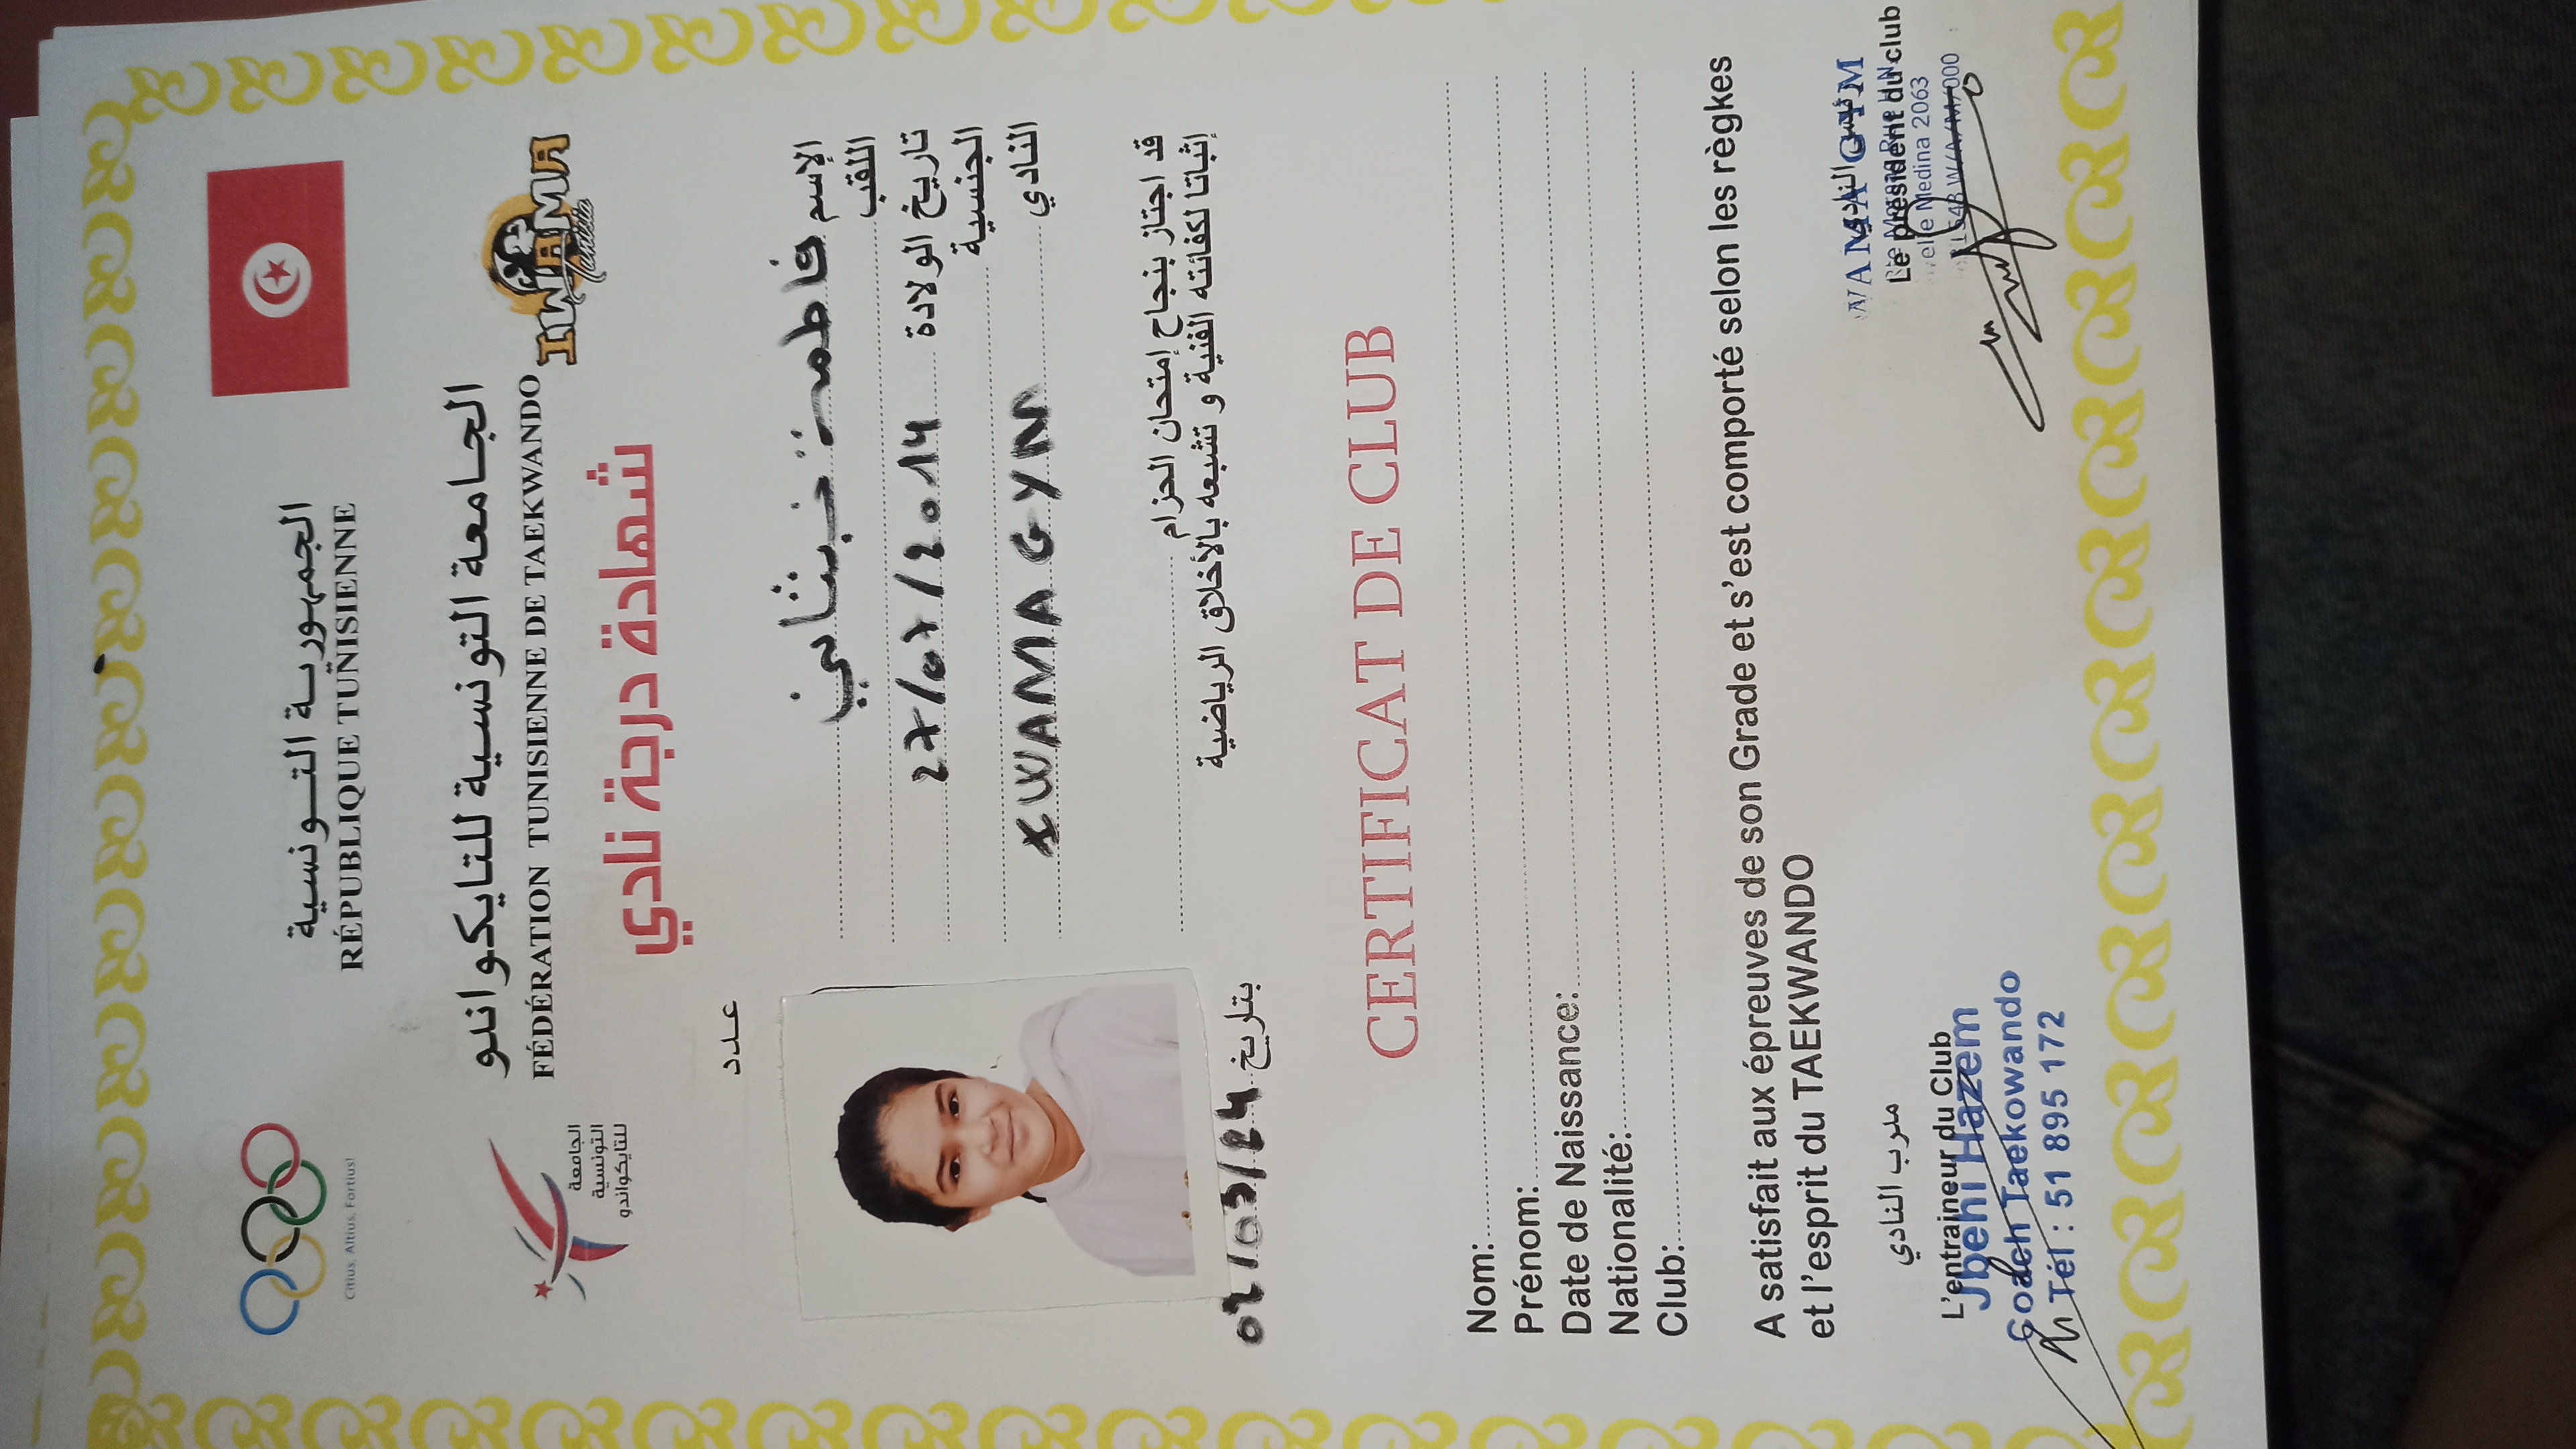 الجمهورية التونسية
RÉPUBLIQUE TUNISIENNE
Citius, Altius, Fortius!
الجامعة التونسية للتايكواندو
FÉDÉRATION TUNISIENNE DE TAEKWANDO
الجامعة
التونسية
للتايكواندو
IWAMA
Tunisia
شهادة درجة نادي
عدد
الإسم فاطمة
اللقب
تاريخ الولادة 27/07/2014
الجنسية
النادي IWAMA GYM
قد اجتاز بنجاح إمتحان الحزام
إثباتا لكفائته الفنية و تشبعه بالأخلاق الرياضية
بتاريخ 02/03/24
CERTIFICAT DE CLUB
Nom:
Prénom:
Date de Naissance:
Nationalité:
Club:
A satisfait aux épreuves de son Grade et s'est comporté selon les règkes
et l'esprit du TAEKWANDO
مدرب النادي
L'entraineur du Club
Jbehi Hazem
Coach Taekowando
Tél : 51 895 172
WAMA GYM
Le président du club
elle Medina 2063